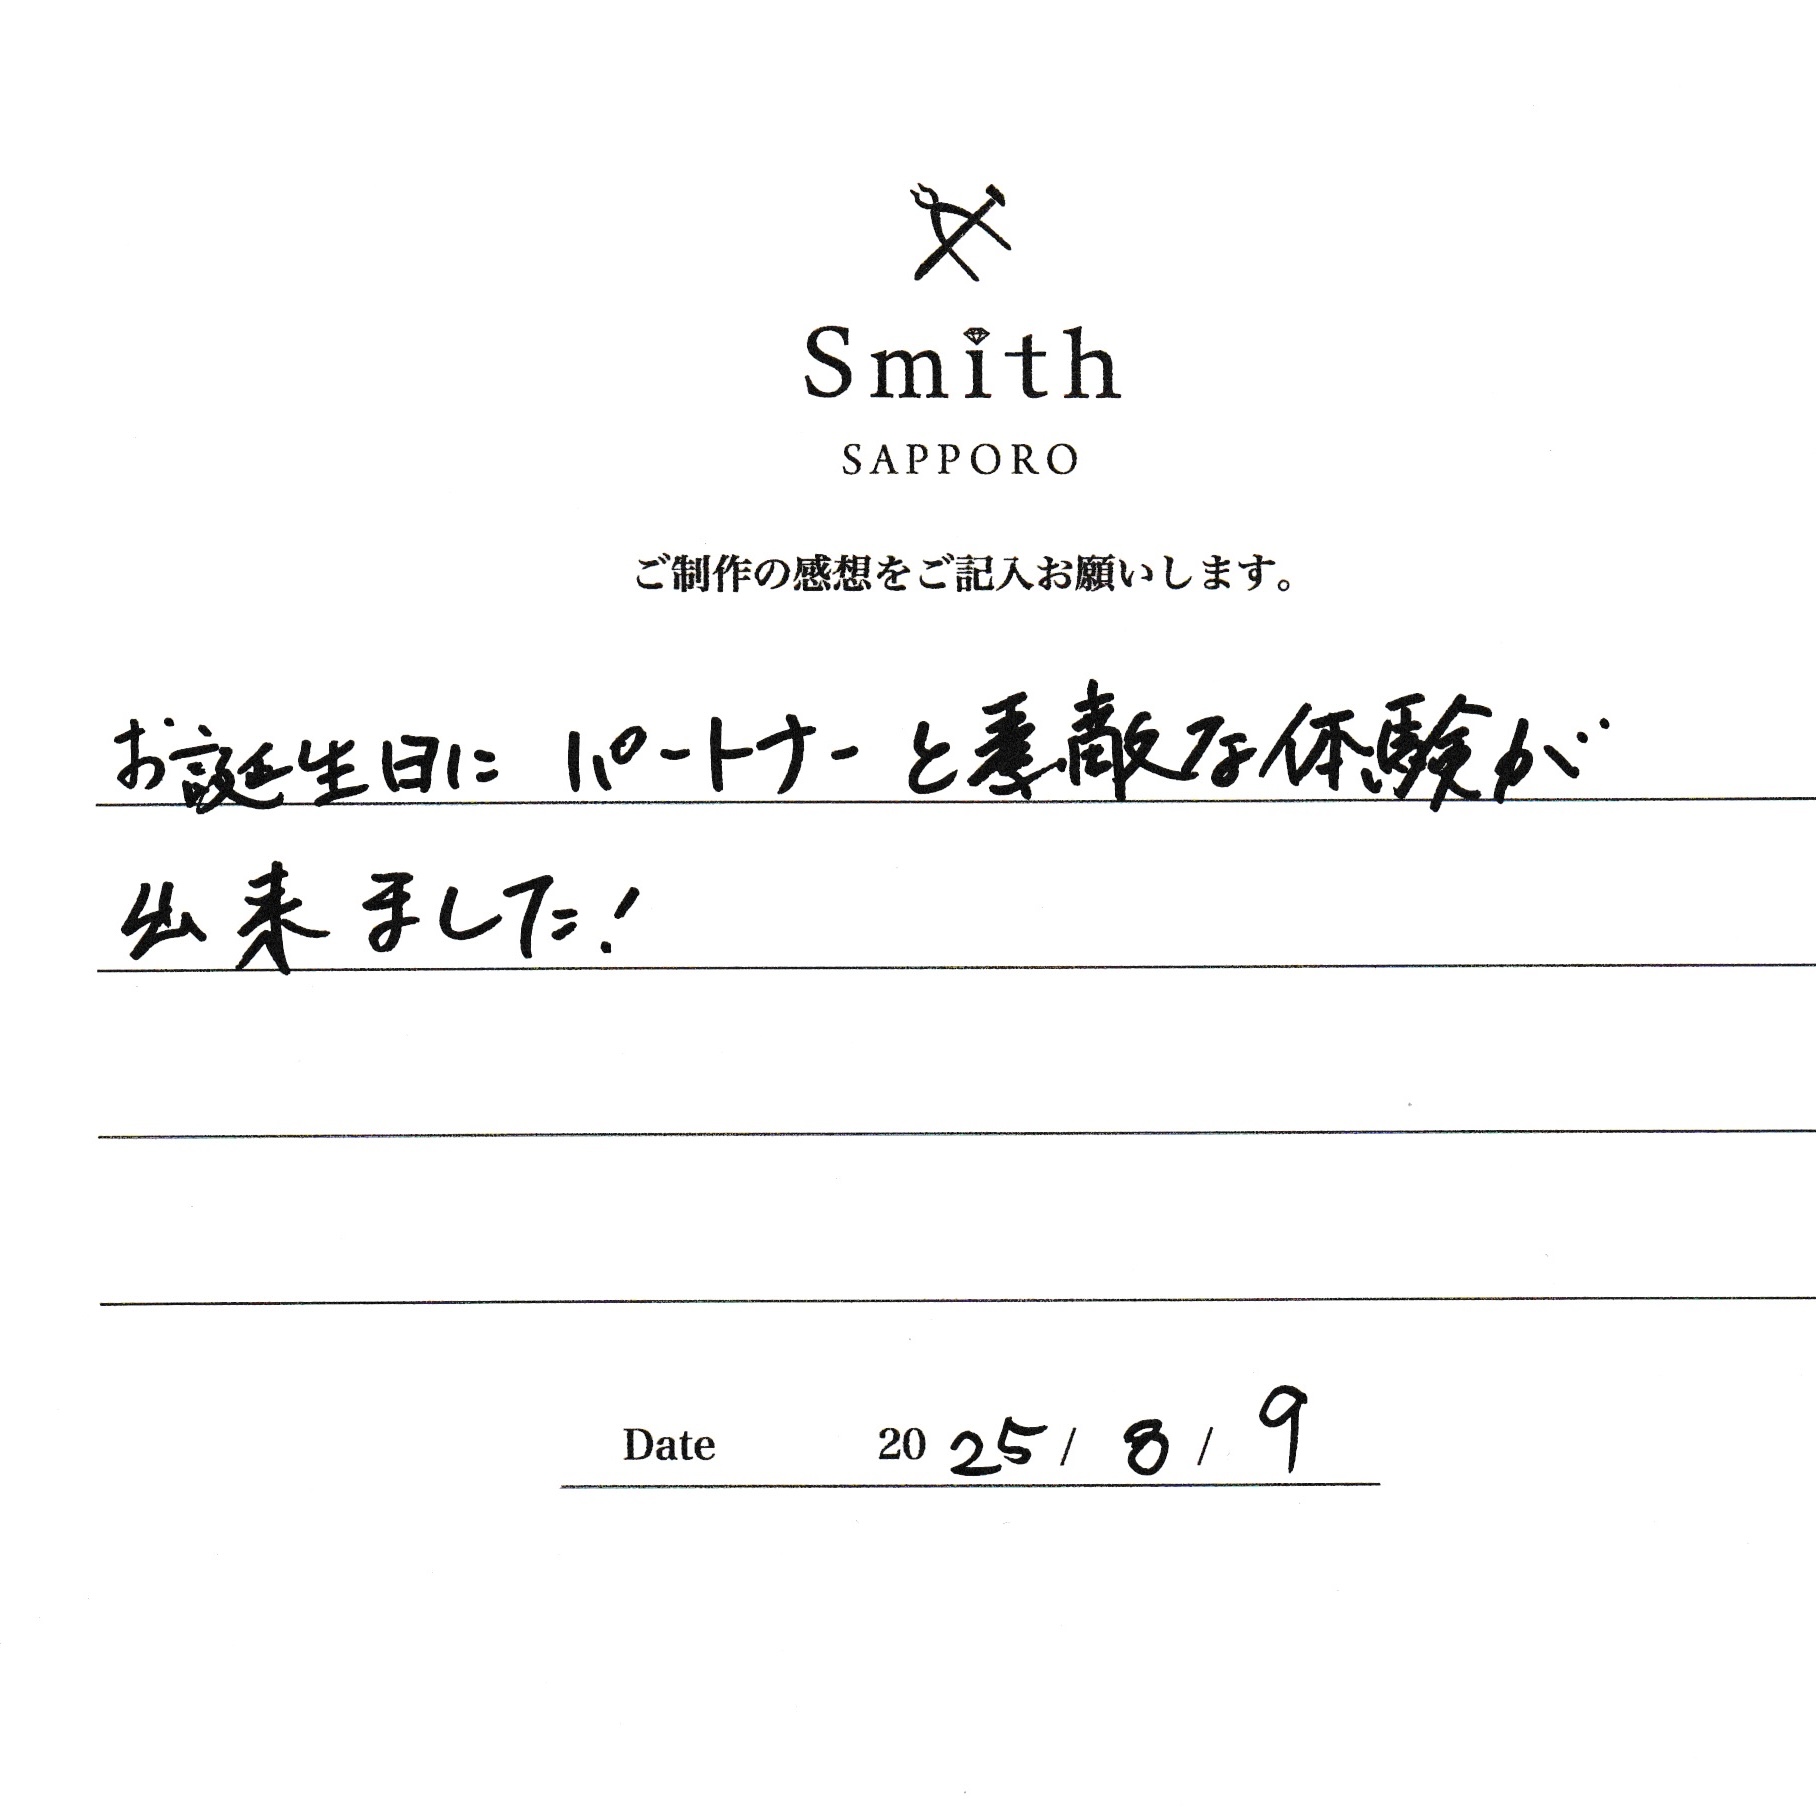 Smith
SAPPORO
ご制作の感想をご記入お願いします。
お誕生日に パートナーと素敵な体験が
出来ました!
Date 2025/8/9